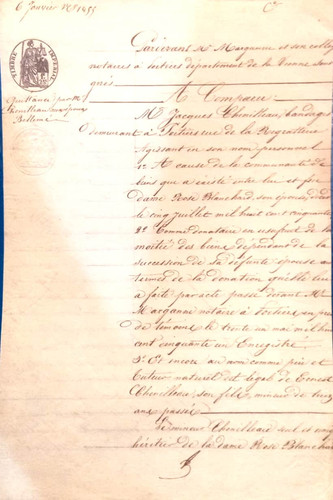 6 Janvier 1855
Pardevant Me Marganne et son collègue
notaires à Poitiers département de la Vienne sous
signés
A Comparu
TIMBRE IMPERIAL
Quittance par Mr
Bellome
Mr Jacques Chenilleau,
demeurant à Poitiers rue de la Regratterie
Agissant en son nom personnel
1° A cause de la communauté de
biens qui a existé entre lui et feu
dame Rose Blanchard, son épouse, décédée
le cinq juillet mil huit cent cinquante
2° Comme donataire en usufruit de la
moitié des biens dépendant de la
succession de sa défunte épouse aux
termes de la donation qu'elle lui
a faite par acte passé devant Me
Marganne notaire à Poitiers en présence
de témoins le trente un mai mil huit
cent cinquante un Enregistré
3° Et encore au nom comme père et
tuteur naturel et légal de
Chenilleau, son fils, mineur de treize
ans passés
Le mineur Chenilleau seul et unique
héritier de la dame Rose Blanchard